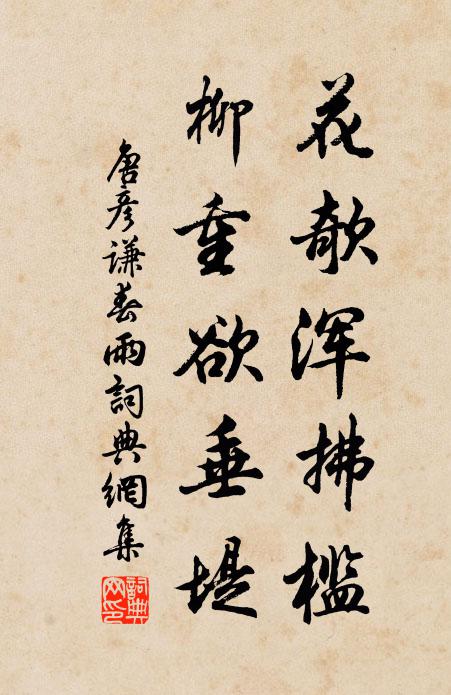 花欹浑拂槛
柳重欲垂堤
唐彦谦春雨詞典網集
詞典网印